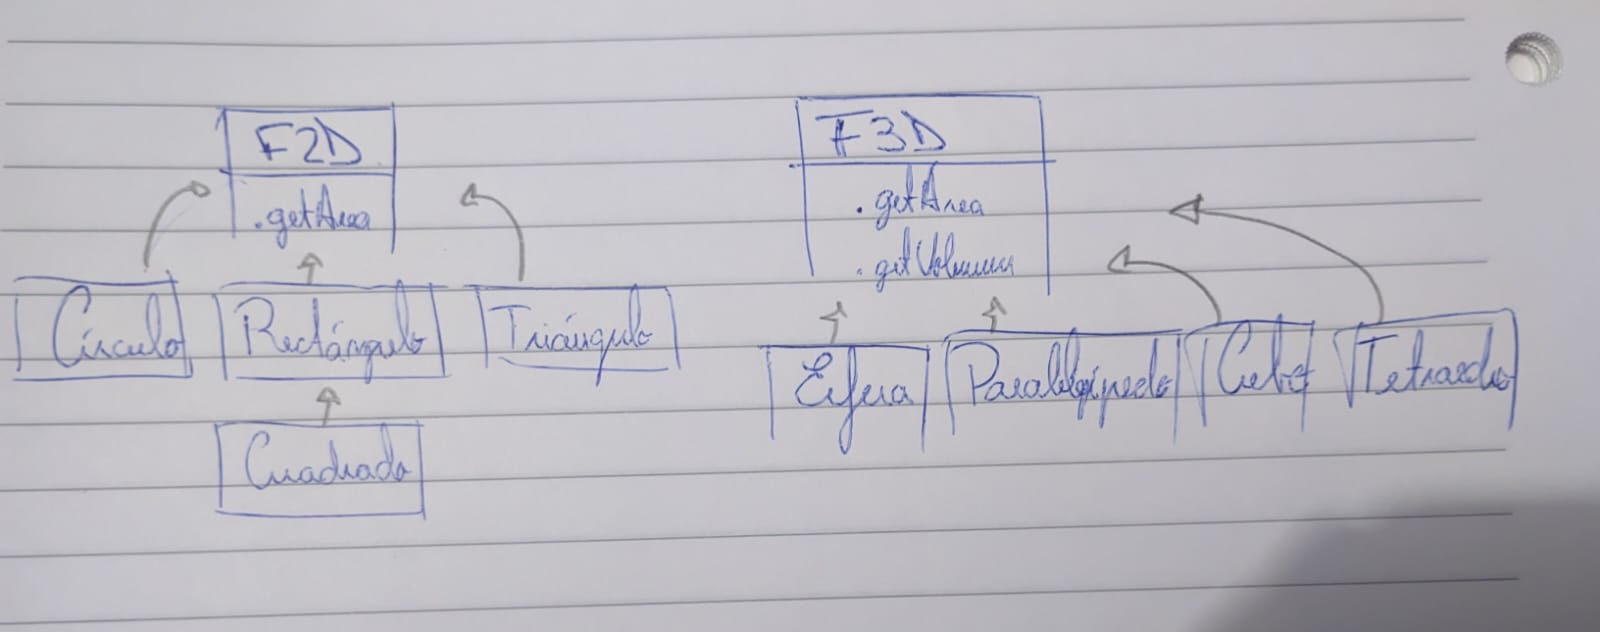 F2D
.getArea
Círculo
Rectángulo
Triángulo
Cuadrado
F3D
.getArea
.getVolumen
Esfera
Paralelepípedo
Cubo
Tetraedro